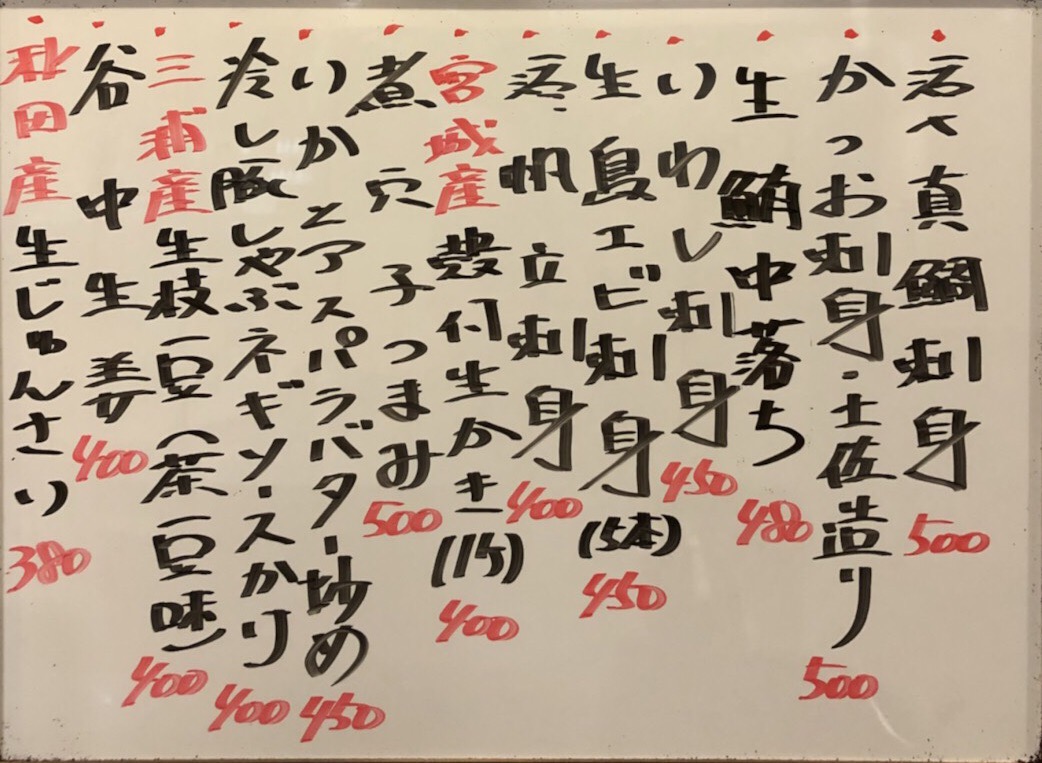 活〆真鯛刺身 500
かつお刺身・土佐造り 500
生鮪中落ち 480
いわし刺身 450
生島エビ刺身(5本) 450
活帆立刺身 400
宮城産殻付生かき(1ケ) 400
煮穴子つまみ 500
いかとアスパラバター炒め 450
冷し豚しゃぶネギソースかけ 400
三浦産生枝豆(茶豆味) 400
谷中生姜 400
秋田産生じゅんさい 380